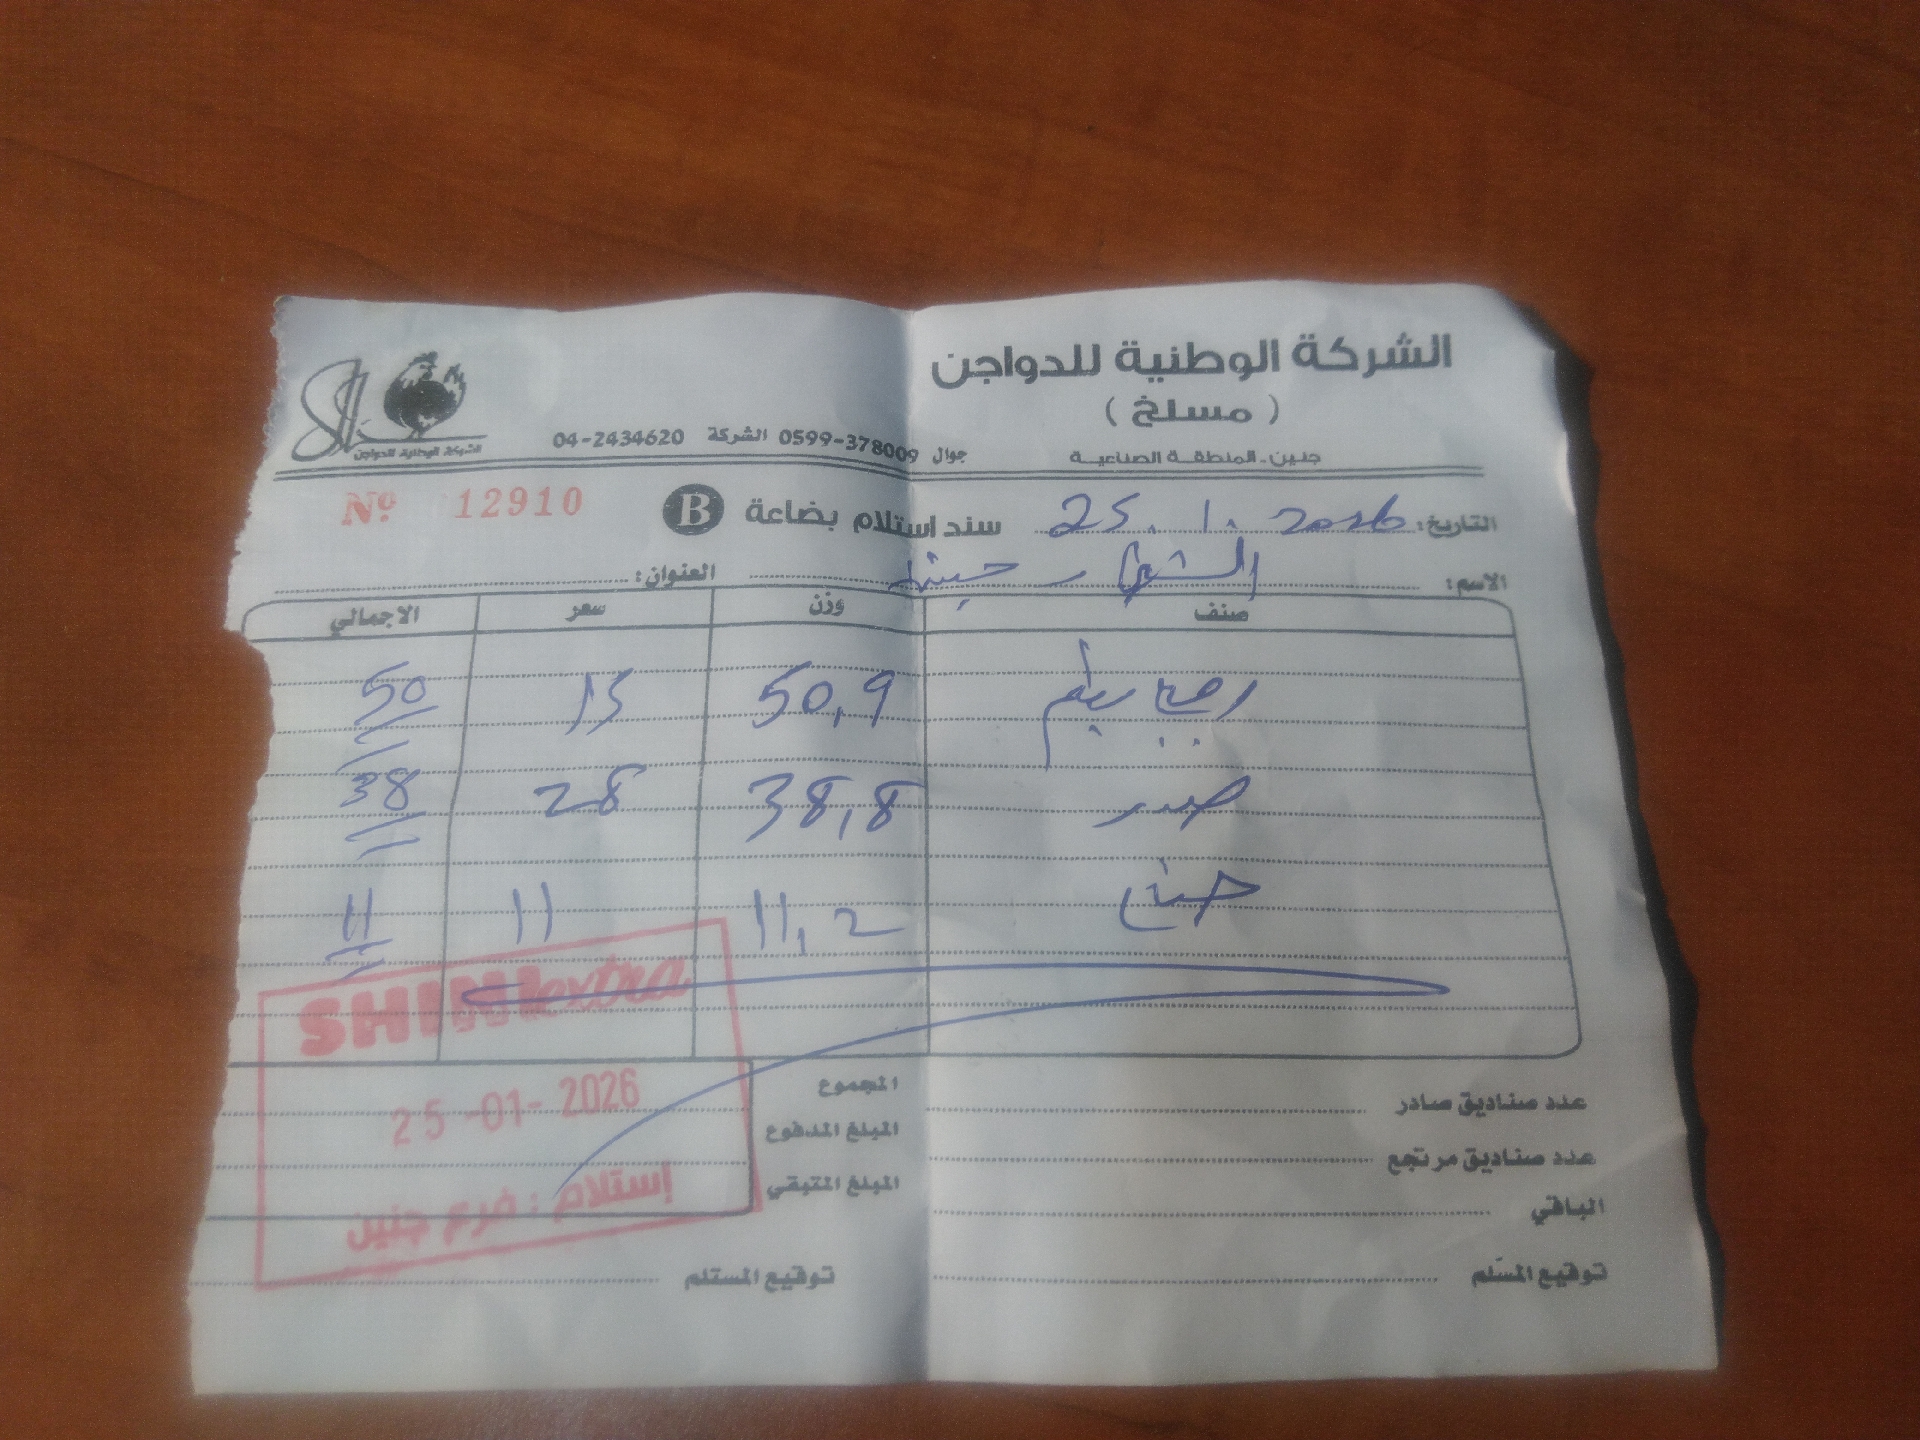 الشركة الوطنية للدواجن
( مسلخ )
جنين - المنطقة الصناعية
جوال 0599-378009 الشركة 04-2434620
الشركة الوطنية للدواجن
التاريخ: 25. 1. 2026
سند استلام بضاعة B
Nº 12910
الاسم:
العنوان:
صنف وزن سعر الاجمالي
50,9 15 50
صدر 38,8 28 38
11,2 11 11
SHINI extra
25-01-2026
إستلام : فرع جنين
عدد صناديق صادر
المجموع
عدد صناديق مرتجع
المبلغ المدفوع
الباقي
المبلغ المتبقي
توقيع المسلم
توقيع المستلم